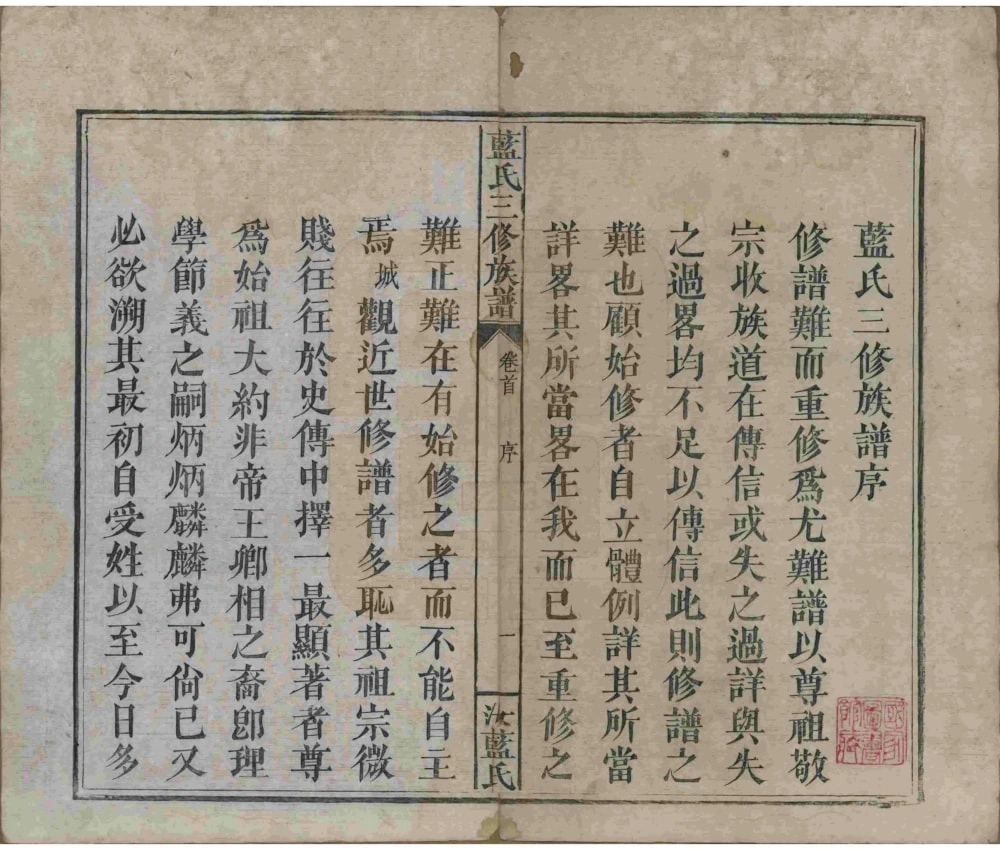 藍氏三修族譜序
修譜難而重修爲尤難譜以尊祖敬
宗收族道在傳信或失之過詳與失
之過畧均不足以傳信此則修譜之
難也顧始修者自立體例詳其所當
詳畧其所當畧在我而已至重修之
藍氏三修族譜
卷首
序
一
汝藍氏
難正難在有始修之者而不能自主
焉城觀近世修譜者多恥其祖宗微
賤往往於史傳中擇一最顯著者尊
爲始祖大約非帝王卿相之裔卽理
學節義之嗣炳炳麟麟弗可尙已又
必欲溯其最初自受姓以至今日多